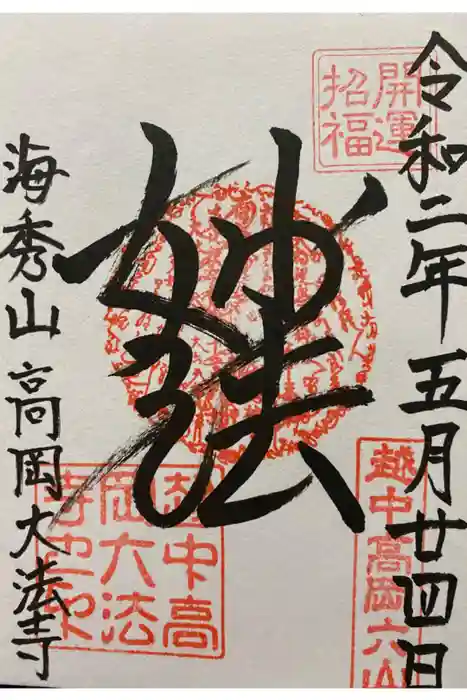 令和二年五月廿四日
開運
招福
妙法
海秀山 高岡大法寺
越中高
岡大法
寺之印
越中高岡